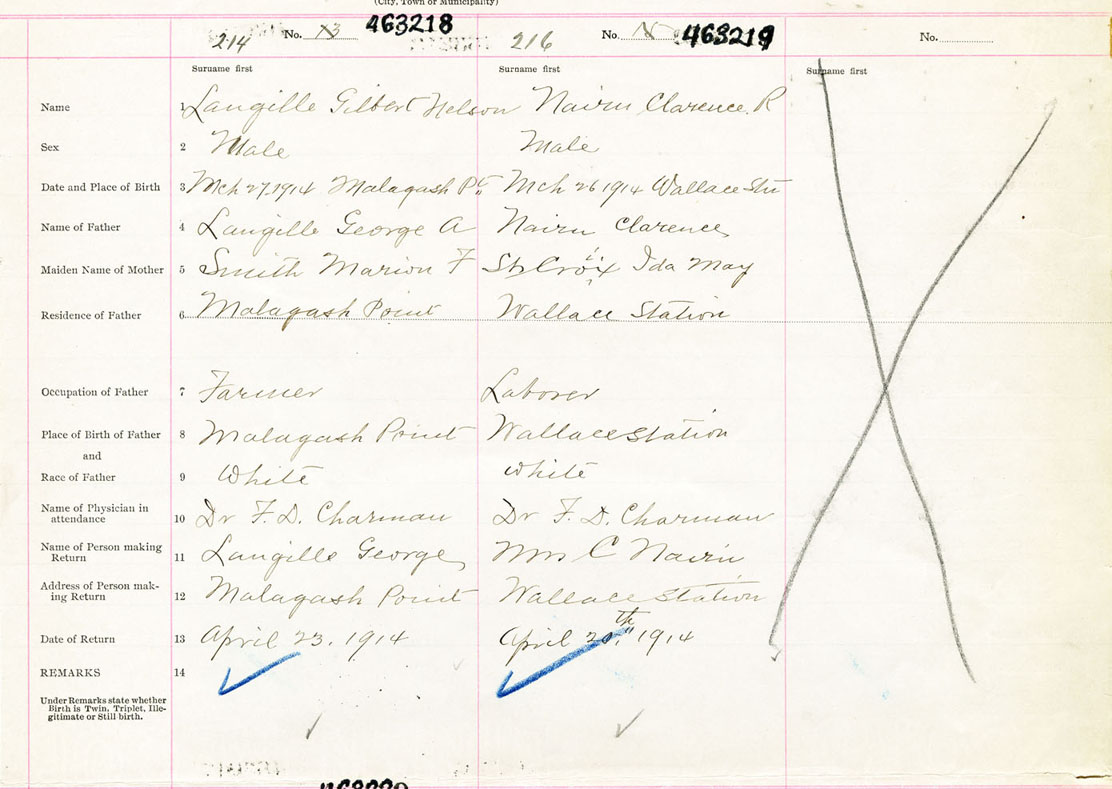 (City, Town or Municipality)
214 No. 13 463218 216 No. 15 463219 No.
Surname first Surname first Surname first
Name 1 Langille Gilbert Nelson Nairn Clarence R
Sex 2 Male Male
Date and Place of Birth 3 Mch 27, 1914 Malagash Pt Mch 26 1914 Wallace Stn
Name of Father 4 Langille George A Nairn Clarence
Maiden Name of Mother 5 Smith Marion F St. Croix Ida May
Residence of Father 6 Malagash Point Wallace Station
Occupation of Father 7 Farmer Laborer
Place of Birth of Father 8 Malagash Point Wallace Station
and
Race of Father 9 White White
Name of Physician in
attendance 10 Dr F. D. Charman Dr F. D. Charman
Name of Person making
Return 11 Langille George Mrs C Nairn
Address of Person mak-
ing Return 12 Malagash Point Wallace Station
Date of Return 13 April 23, 1914 April 20th 1914
REMARKS 14
Under Remarks state whether
Birth is Twin, Triplet, Ille-
gitimate or Still birth.